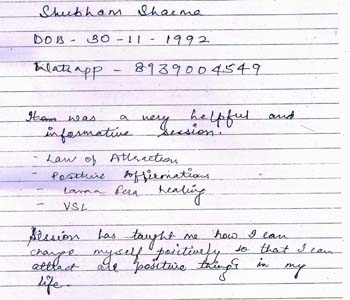 Shubham Sharma
DOB - 30-11-1992
Whatsapp - 8939004549
was a very helpful and
informative session.
- Law of Attraction
- Positive Affirmations
- Lama Fera healing
- VSL
Session has taught me how I can
change myself positively so that I can
attract all positive things in my
life.